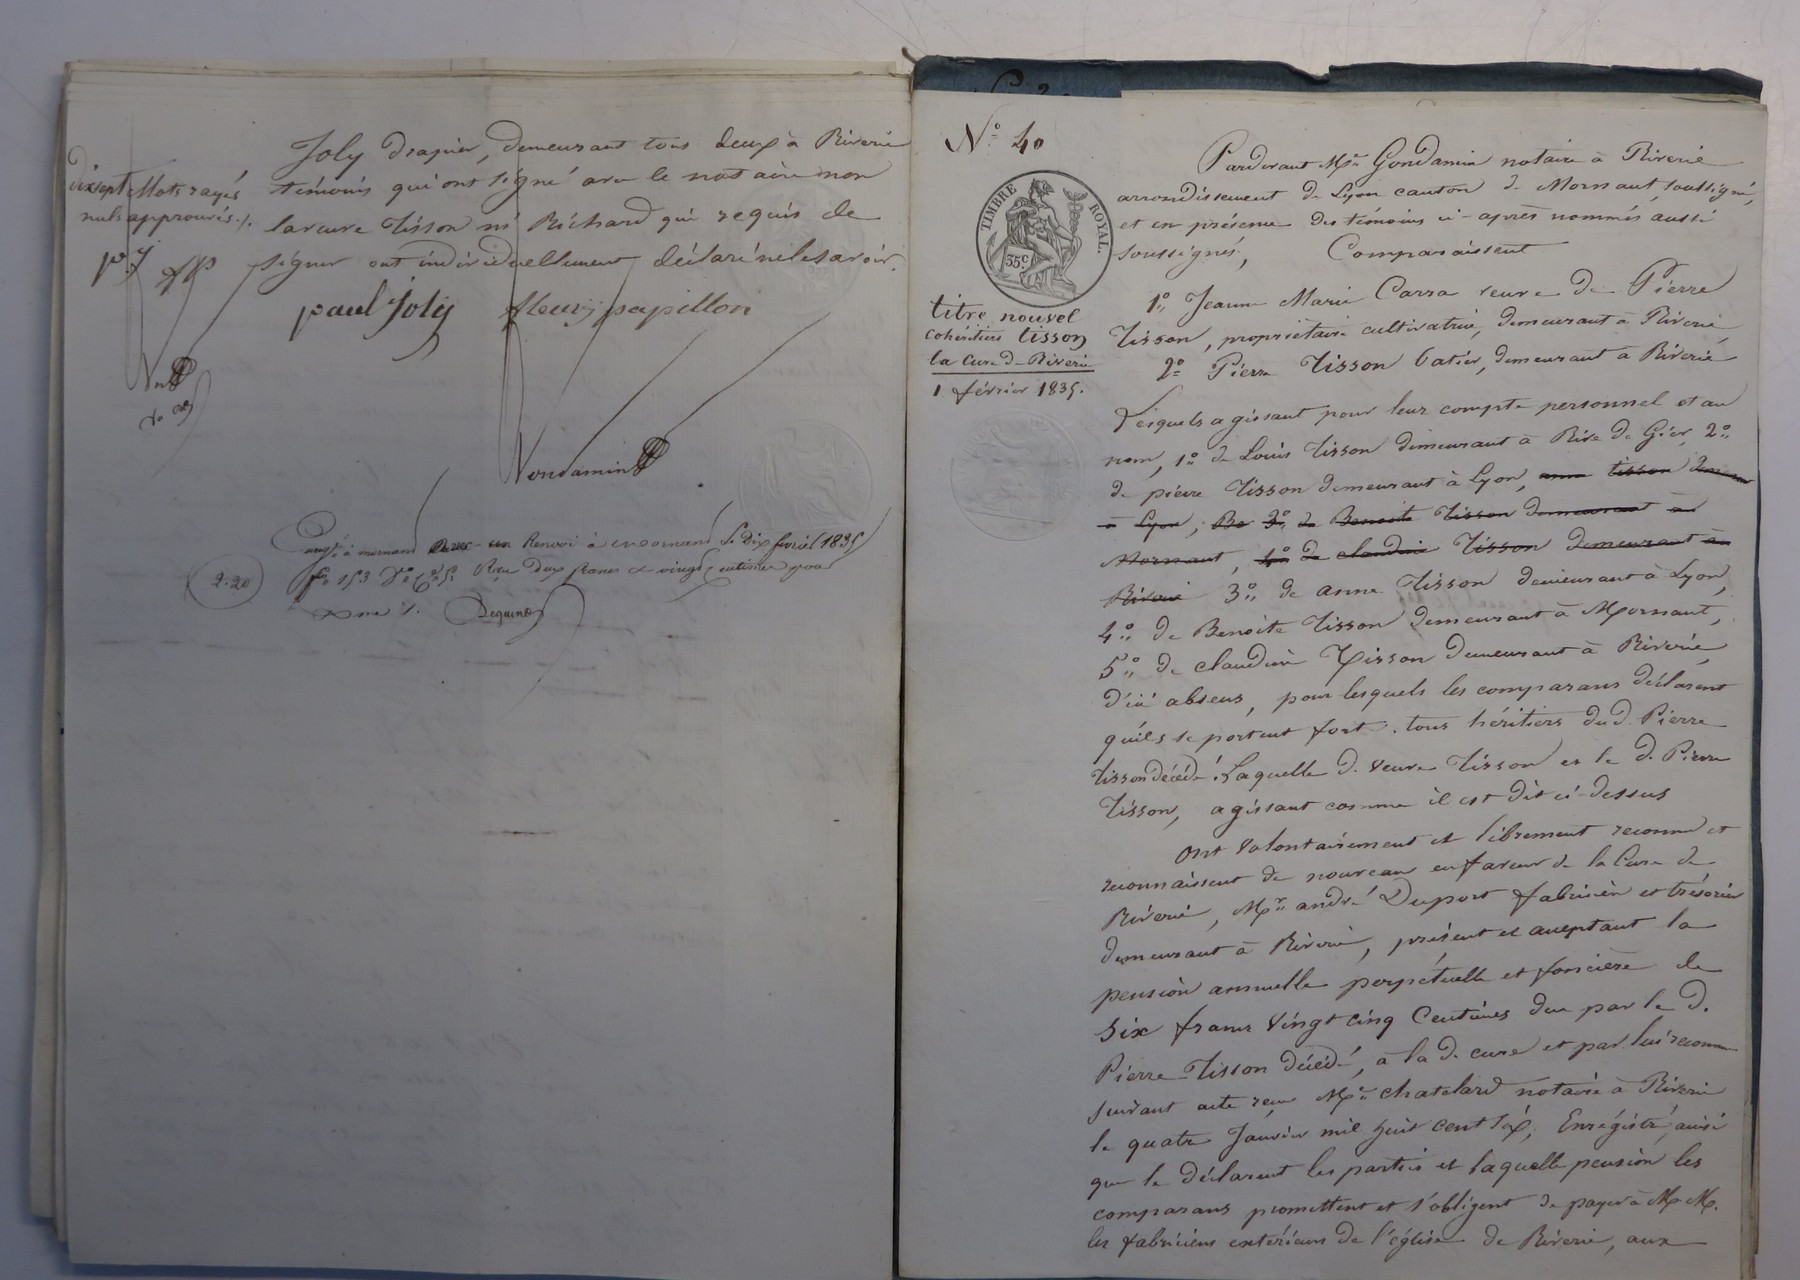 Joly drapier, demeurant tous deux à Riverie
témoins qui ont signé avec le notaire non
la veuve Tisson ni Richard qui requis de
signer ont individuellement déclaré ne le savoir.
dix sept Mots rayés
nuls approuvés ./.
p. J
fp
paul Joly fleury papillon
Gondamin
Enreg.é à mornant Renvoi à mornant le Dix février 1835
f.o 153 Reçu deux francs et vingt centimes pour
2.20
Dequine
N.o 40
TIMBRE ROYAL.
35 c
titre nouvel
cohéritiers tisson
la Cure de Riverie
1 février 1835.
Pardevant M.re Gondamin notaire à Riverie
arrondissement de Lyon canton de Mornant, soussigné,
et en présence des témoins ci-après nommés aussi
soussignés, Comparaissent
1.o Jeanne Marie Carra veuve de Pierre
Tisson, propriétaire cultivatrice, demeurant à Riverie,
2.o Pierre Tisson batier, demeurant à Riverie
Lesquels agissant pour leur compte personnel et au
nom, 1.o de Louis Tisson demeurant à Rive de Gier, 2.o
de pierre Tisson demeurant à Lyon, anne tisson demeurant
à Lyon, Be 3.o de Benoite Tisson demeurant à
Mornant, 4.o de claudine Tisson demeurant à
Riverie 3.o de anne Tisson demeurant à Lyon,
4.o de Benoite Tisson demeurant à Mornant,
5.o de claudine Tisson demeurant à Riverie,
d'ici absens, pour lesquels les comparans déclarent
qu'ils se portent fort. tous héritiers dud. Pierre
Tisson décédé. Laquelle d. veuve Tisson et le d. Pierre
Tisson, agissant comme il est dit ci-dessus
Ont volontairement et librement reconnu et
reconnaissent de nouveau en faveur de la Cure de
Riverie, M.r andré Duport fabricien et trésorier
demeurant à Riverie, présent et acceptant la
pension annuelle perpétuelle et foncière de
six francs vingt cinq Centimes due par le d.
Pierre Tisson décédé, à la d. cure et par lui reconnue
suivant acte reçu M.e chatelard notaire à Riverie
le quatre Janvier mil huit cent six, Enrégistré, ainsi
que le déclarent les parties et laquelle pension les
comparans promettent et s'obligent de payer à M. M.
les fabriciens extérieurs de l'église de Riverie, aux